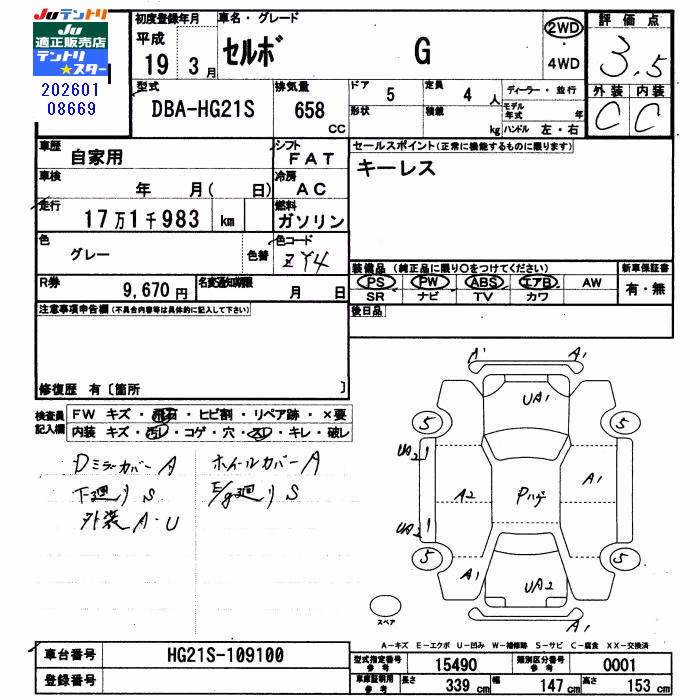 JUテントリ
JU
適正販売店
テントリ
★スター
202601
08669
初度登録年月
平成
19 3月
車名・グレード
セルボ G
2WD
・
4WD
評価点
3.5
外装 内装
C C
型式
DBA-HG21S
排気量
658
CC
ドア
5
定員
4人
形状
積載
kg
ディーラー・並行
モデル
年式 年
ハンドル 左・右
車歴
自家用
シフト
FAT
車検
年 月( 日)
冷房
AC
走行
17万1千983 km
燃料
ガソリン
色
グレー
色替
色コード
ZY4
R券
9,670円
名変通知期限
月 日
セールスポイント(正常に機能するものに限ります)
キーレス
装備品(純正品に限り○をつけてください)
PS PW ABS エアB AW
SR ナビ TV カワ
新車保証書
有・無
後日品
注意事項申告欄(不具合内容等は具体的に記入して下さい)
修復歴 有〔箇所 〕
検査員
記入欄
FW キズ・飛石・ヒビ割・リペア跡・×要
内装 キズ・汚レ・コゲ・穴・スレ・キレ・破レ
DミラーカバーA ホイールカバーA
下廻りS E/g廻りS
外装A・U
A1 A1
UA1
5 5
UA21
A2 Pハゲ A1
UA21
5 5
A1 UA2
A1
スペア
A-キズ E-エクボ U-凹み W-補修跡 S-サビ C-腐食 XX-交換済
車台番号
HG21S-109100
登録番号
型式指定番号
参考
15490
類別区分番号
参考
0001
車庫証明用
参考
長さ 339 cm 幅 147 cm 高さ 153 cm